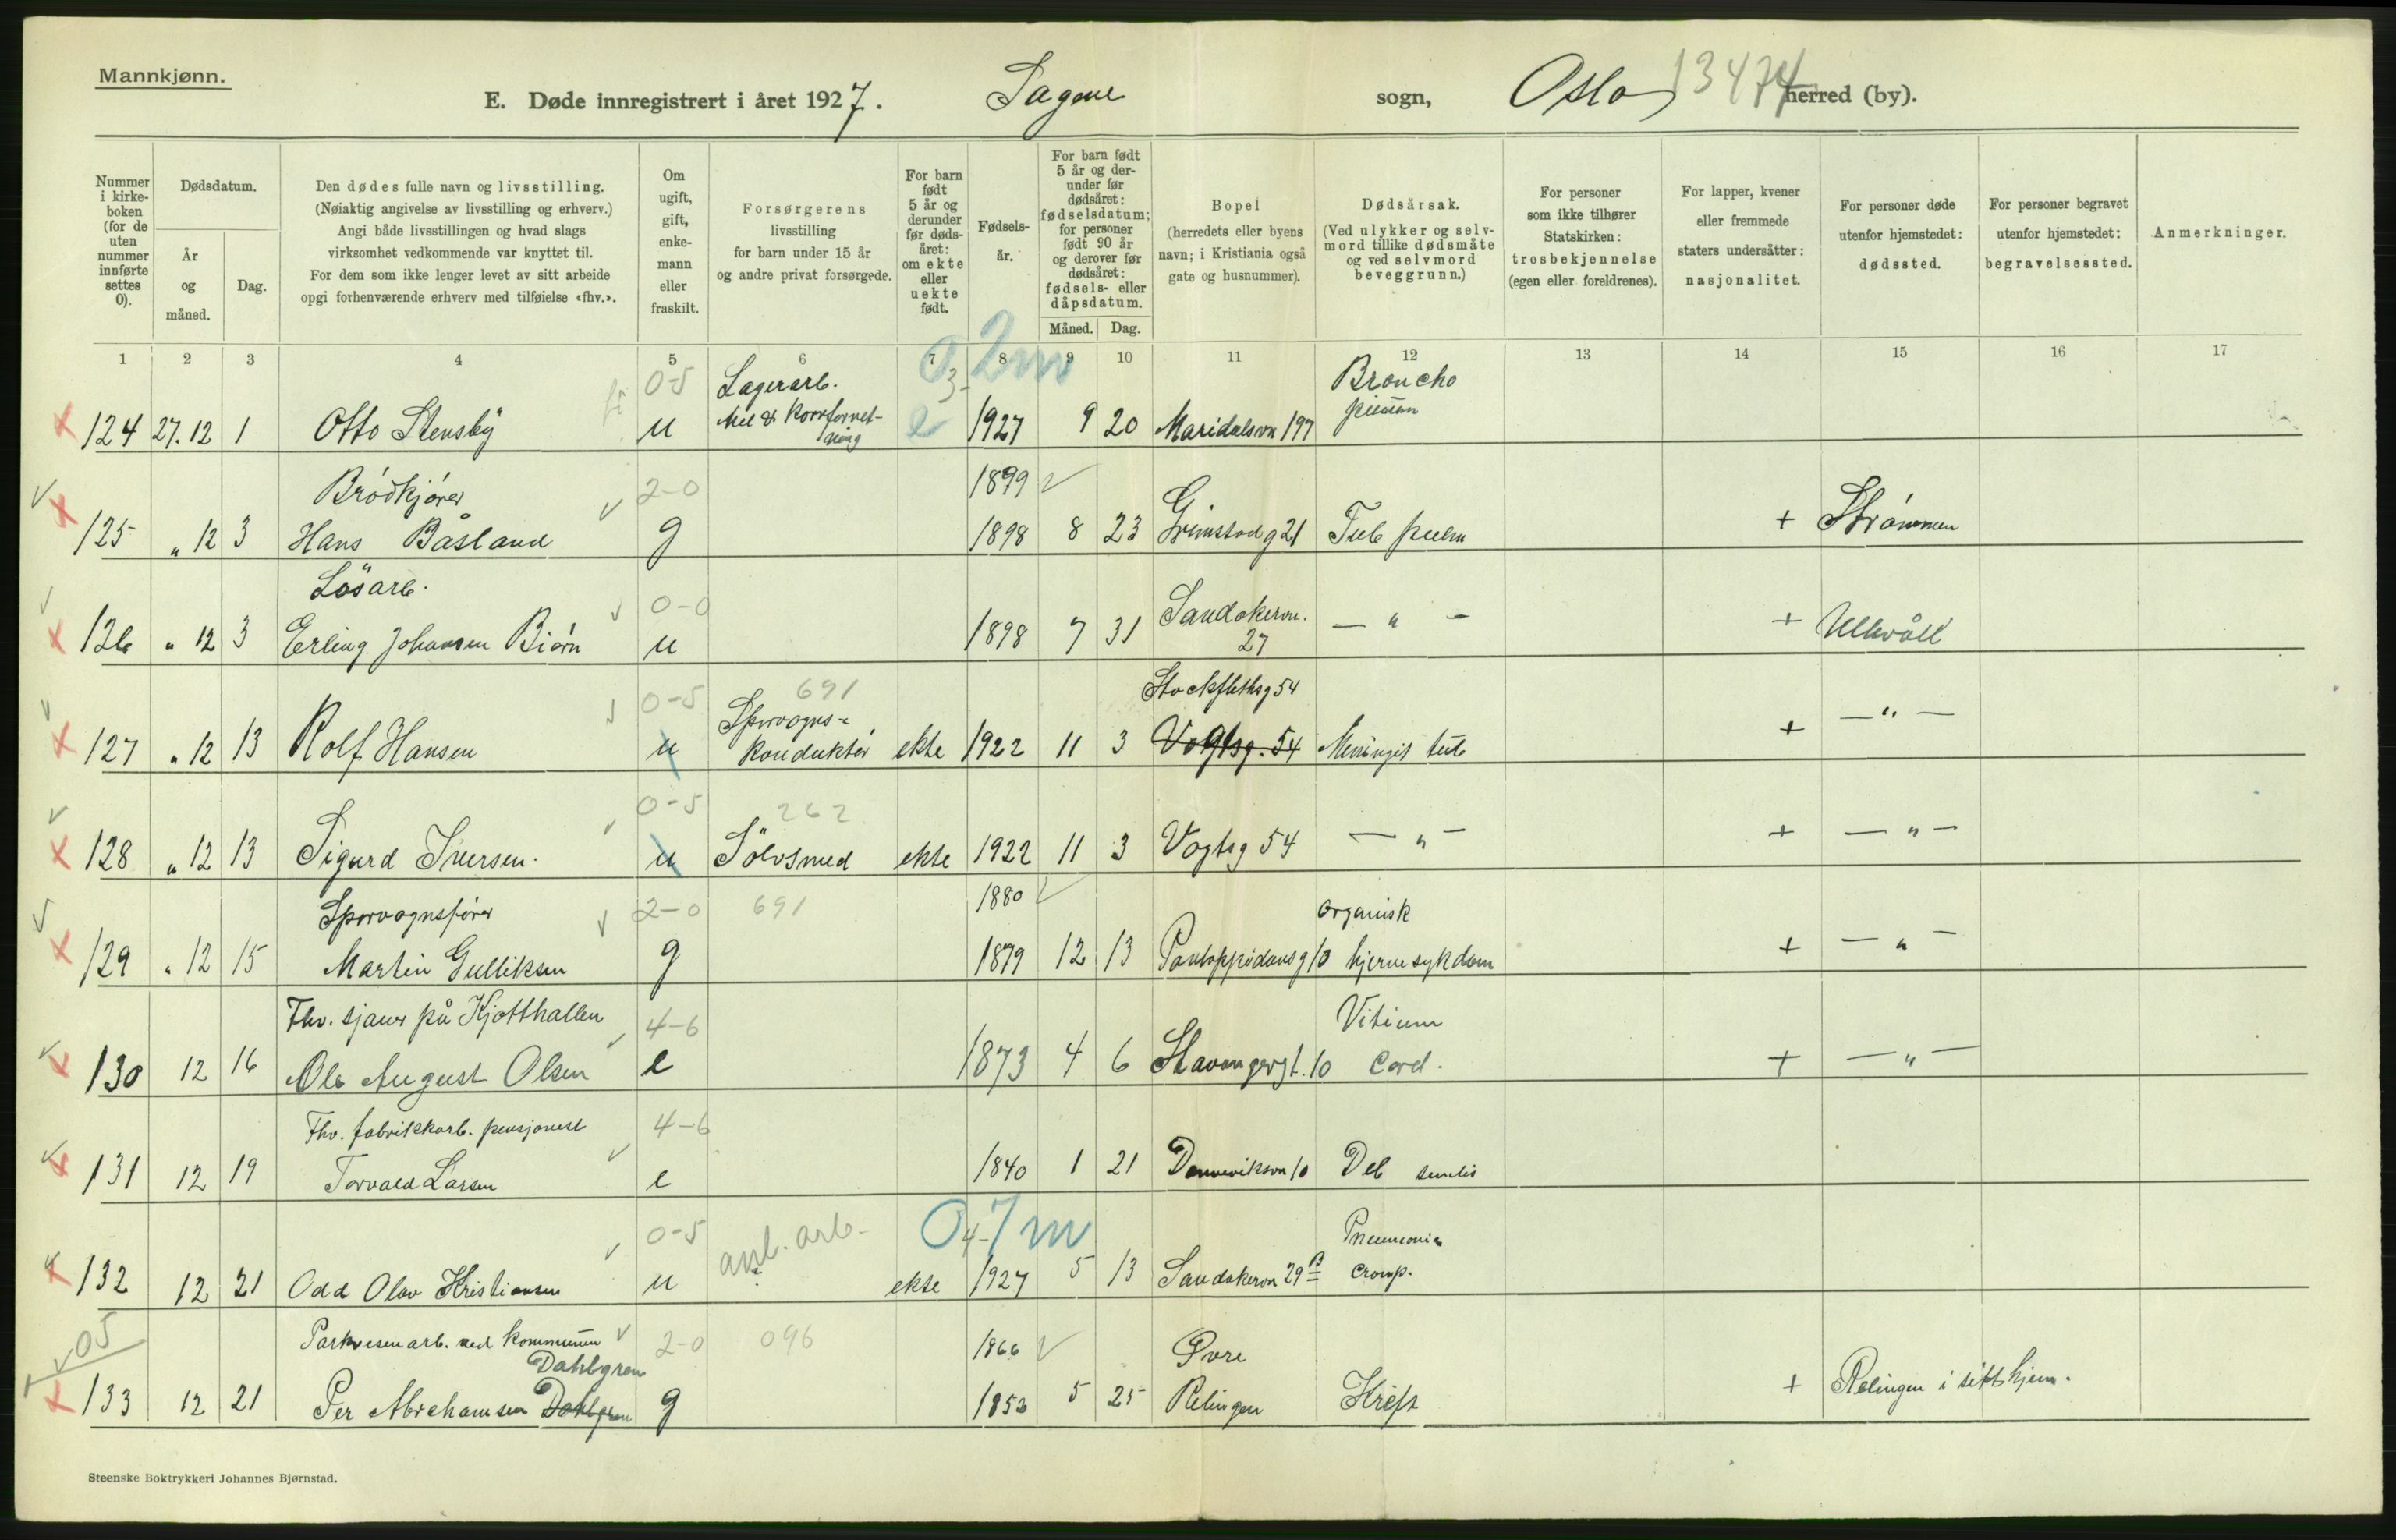 Mannkjønn.
E. Døde innregistrert i året 1927. Sagene sogn, Oslo 13474 herred (by).
Nummer i kirke-boken (for de uten nummer innførte settes 0).
Dødsdatum.
År og måned.
Dag.
Den dødes fulle navn og livsstilling.
(Nøiaktig angivelse av livsstilling og erhverv.)
Angi både livsstillingen og hvad slags
virksomhet vedkommende var knyttet til.
For dem som ikke lenger levet av sitt arbeide
opgi forhenværende erhverv med tilføielse «fhv.».
Om ugift, gift, enke-mann eller fraskilt.
Forsørgerens
livsstilling
for barn under 15 år
og andre privat forsørgede.
For barn født 5 år og derunder før døds-året: om ekte eller uekte født.
Fødsels-år.
For barn født 5 år og der-under før dødsåret: fødselsdatum; for personer født 90 år og derover før dødsåret: fødsels- eller dåpsdatum.
Måned. Dag.
Bopel
(herredets eller byens
navn; i Kristiania også
gate og husnummer).
Dødsårsak.
(Ved ulykker og selv-
mord tillike dødsmåte
og ved selvmord
beveggrunn.)
For personer
som ikke tilhører
Statskirken:
trosbekjennelse
(egen eller foreldrenes).
For lapper, kvener
eller fremmede
staters undersåtter:
nasjonalitet.
For personer døde
utenfor hjemstedet:
dødssted.
For personer begravet
utenfor hjemstedet:
begravelsessted.
Anmerkninger.
1 2 3 4 5 6 7 8 9 10 11 12 13 14 15 16 17
0-5 Lagerarb. 0 3- 2m Broncho
124 27.12 1 Otto Stensby u Mel & Kornforret-ning e 1927 9 20 Maridalsvn 197
Brödkjörer 2-0 1899
125 " 12 3 Hans Båsland g 1898 8 23 Grimstadg 21 Tub pulm + Strömmen
Lösarb. 0-0
126 " 12 3 Erling Johansen Biörn u 1898 7 31 Sandakervn. 27 — " — + Ullevåll
0-5 691 Stockflethsg 54
127 " 12 13 Rolf Hansen u Sporvogns-konduktör ekte 1922 11 3 Vogtsg. 54 Meningit tub + — " —
0-5 262
128 " 12 13 Sigurd Iversen. u Sölvsmed ekte 1922 11 3 Vogtsg 54 — " — + — " —
Sporvognsförer 2-0 691 1880 organisk
129 " 12 15 Martin Gulliksen g 1879 12 13 Pontoppidansg 10 hjernesykdom + — " —
Fhv. sjauer på Kjøtthallen 4-6 Vitium
130 12 16 Ole August Olsen e 1873 4 6 Stavangergt. 10 Cord. + — " —
Fhv. fabrikkarb. pensjonist 4-6
131 12 19 Torvald Larsen e 1840 1 21 Danneviksvn 10 Deb senilis
0-5 anl. arb. 0 4- 7m Pneumonia
132 12 21 Odd Olav Kristiansen u ekte 1927 5 13 Sandakervn 29 B croup.
05 Parkvesenarb. ved kommunen 2-0 096 1866 Övre
Dahlgren
133 12 21 Per Abrahamsen Dahlgren g 1853 5 25 Relingen Kreft + Relingen i sitt hjem.
Steenske Boktrykkeri Johannes Bjørnstad.